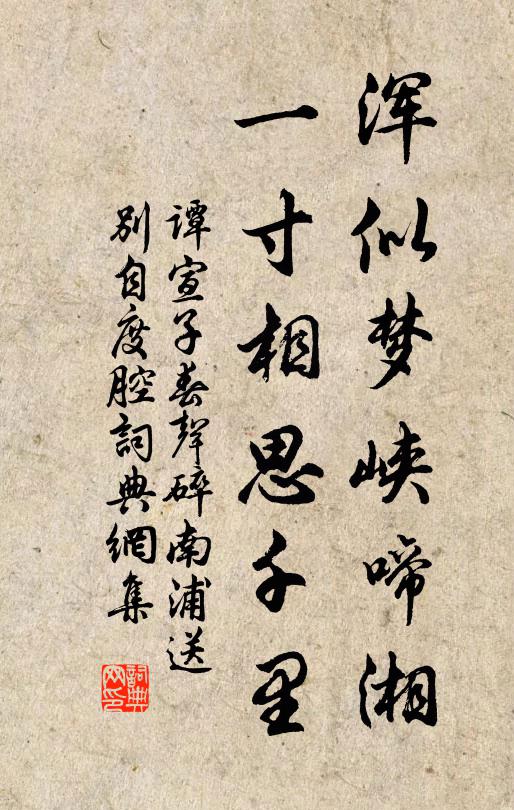 浑似梦峡啼湘
一寸相思千里
譚宣子春聲碎南浦送
別自度腔詞典網集
詞典网印